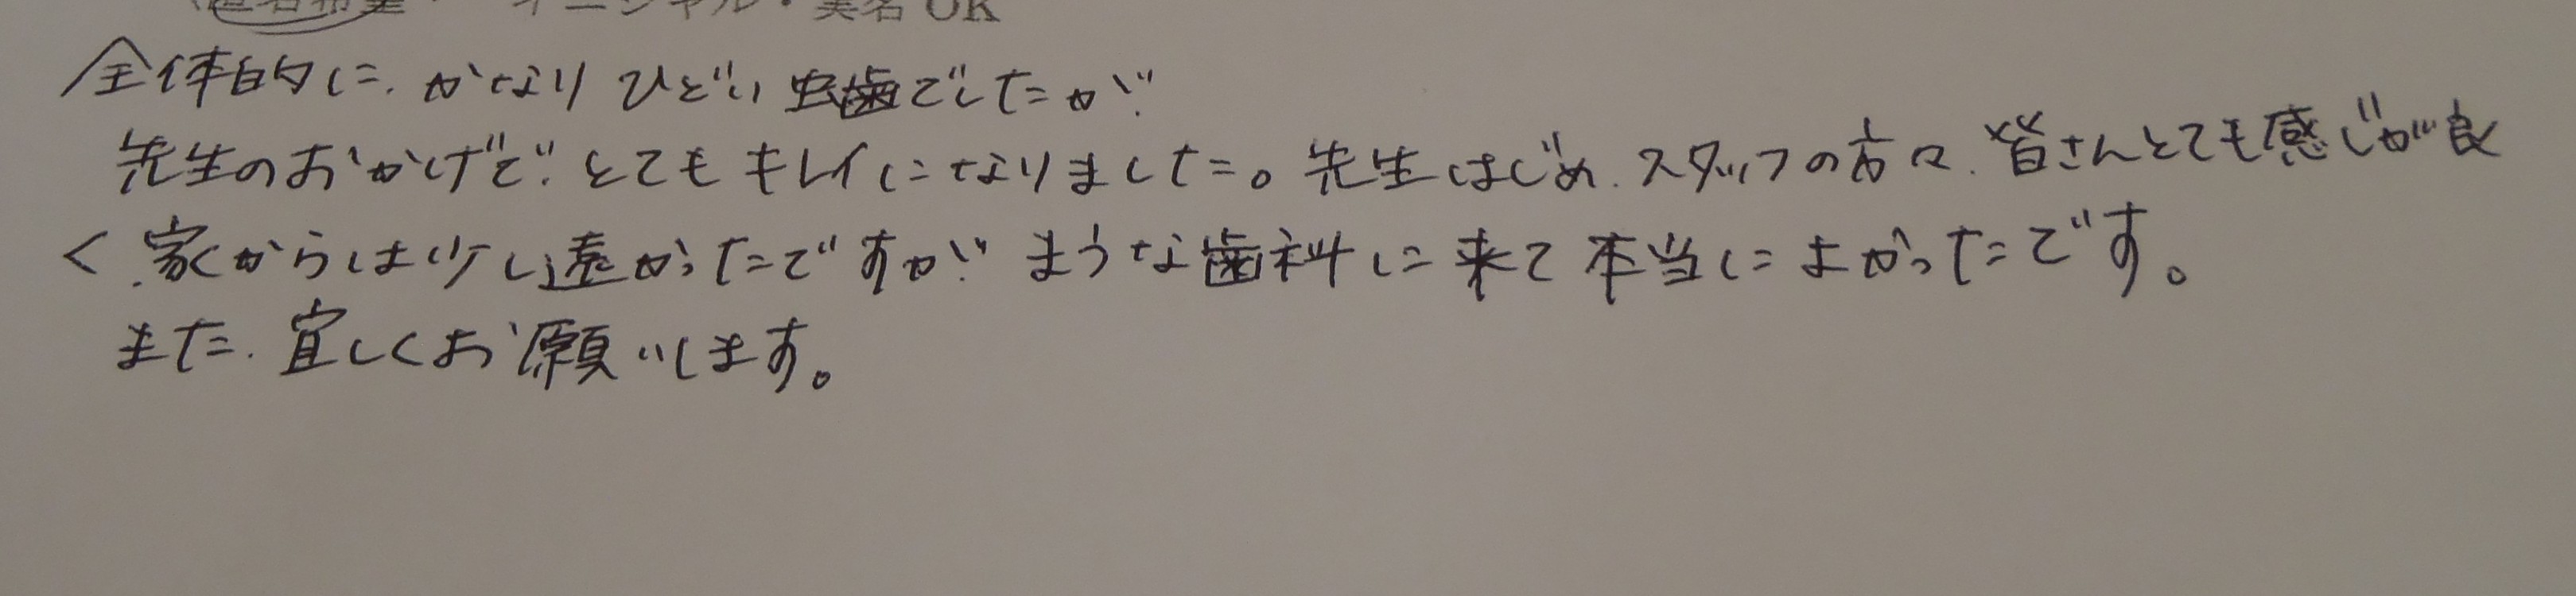 匿名希望・イニシャル・実名OK
全体的に、かなりひどい虫歯でしたが、
先生のおかげで、とてもキレイになりました。先生はじめ、スタッフの方々、皆さんとても感じが良
く、家からは少し遠かったですが、まうな歯科に来て本当によかったです。
また、宜しくお願いします。